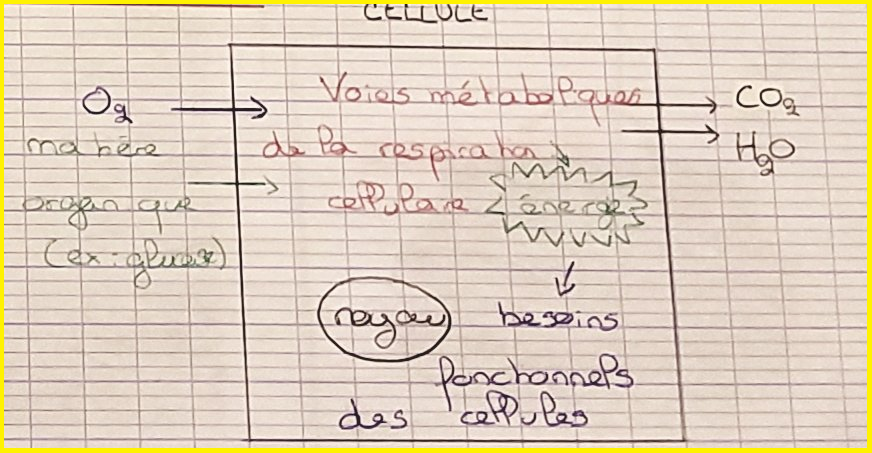 CELLULE
O₂ → Voies métaboliques → CO₂
matière de la respiration → H₂O
organique → cellulaire énergie
(ex : glucose)
noyau besoins
fonctionnels
des cellules